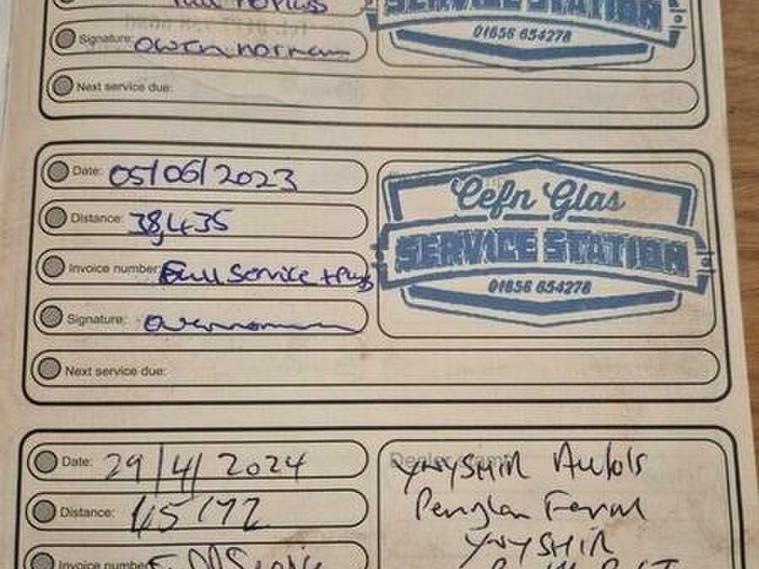 Full
SERVICE STATION
01656 654278
Signature: Owen norman
Next service due:
Date: 05/06/2023
Distance: 38,435
Invoice number: Full Service + Plugs
Signature:
Next service due:
Cefn Glas
SERVICE STATION
01656 654278
Date: 29/4/2024
Distance: 45172
Invoice number
Full Service
Dealer stamp
YNYSHIR Autos
Penglan Farm
YNYSHIR